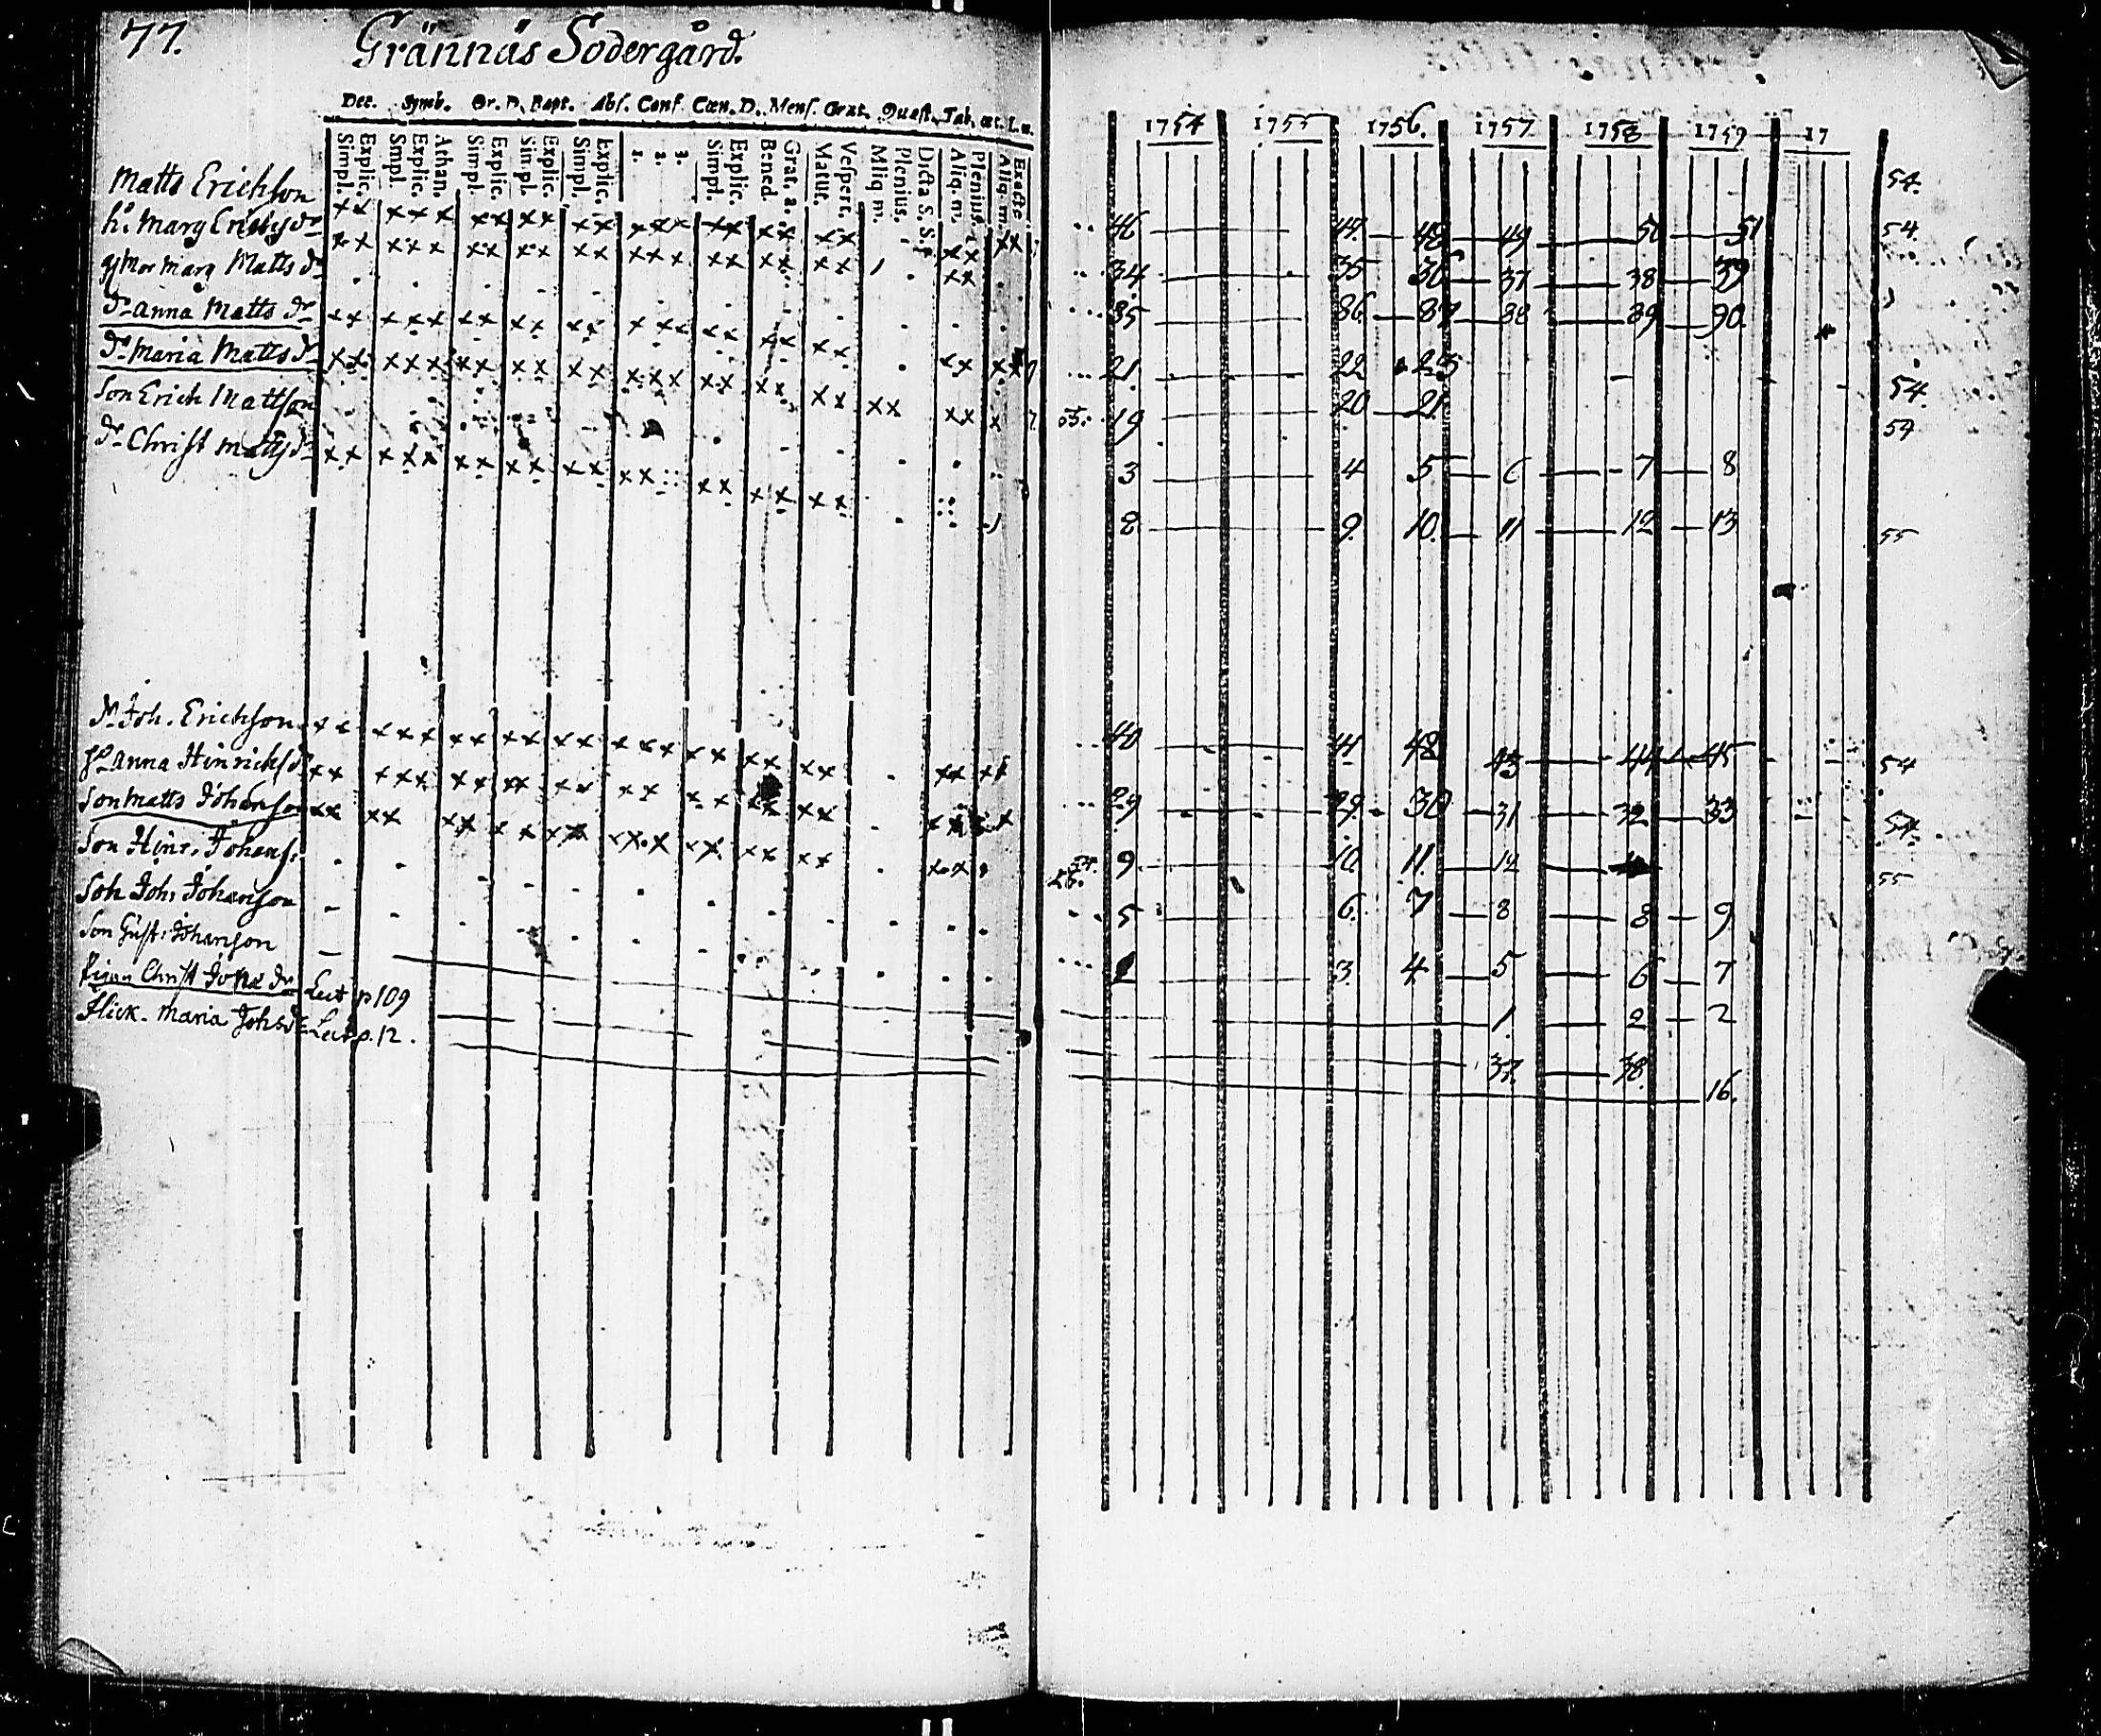 77.
Grännäs Södergård.
Dec. Symb. Or. D. Bapt. Abs. Conf. Cœn. D. Mens. Grat. Quæst. Tab. œc. L. v.
Simpl. Explic. Smpl. Explic. Athan. Simpl. Explic. Simpl. Explic. Simpl. Explic. 1. 2. 3. Simpl. Explic. Bened. Grat. a. Matut. Vespert. Aliq. m. Plenius. Dicta S. S. Aliq. m. Plenius. Aliq. m. Exacte
1754 1755 1756. 1757 1758 1759 17
54.
Matts Erichson 46 47. 48 49 50 51 54.
hº Marg Erichsdr 34 35 36 37 38 39
Marg Matts dr 85 86. 87 88 89 90.
Dr Anna Matts dr 21. 22 23 54.
Dr Maria Matts dr 55. 19 20 21 54
Son Erich Mattson 3 4 5 6 7 8
Dr Christ Mattsdr 8 9. 10. 11 12 13 55
Joh. Erichson 40 41 42 43 44 45 54
Anna Hinrichsdr 29 29. 30 31 32 33 54.
Son Matts Johanson 9. 10. 11. 12 55
Son Hinr. Johans: 5 6. 7 8 8 9
Son Joh: Johanson 2 3. 4 5 6 7
Son Gust: Johanson 1. 2 2
Christ Dr p 109 37. 38.
Flick. Maria Johsdr p. 12. 16.